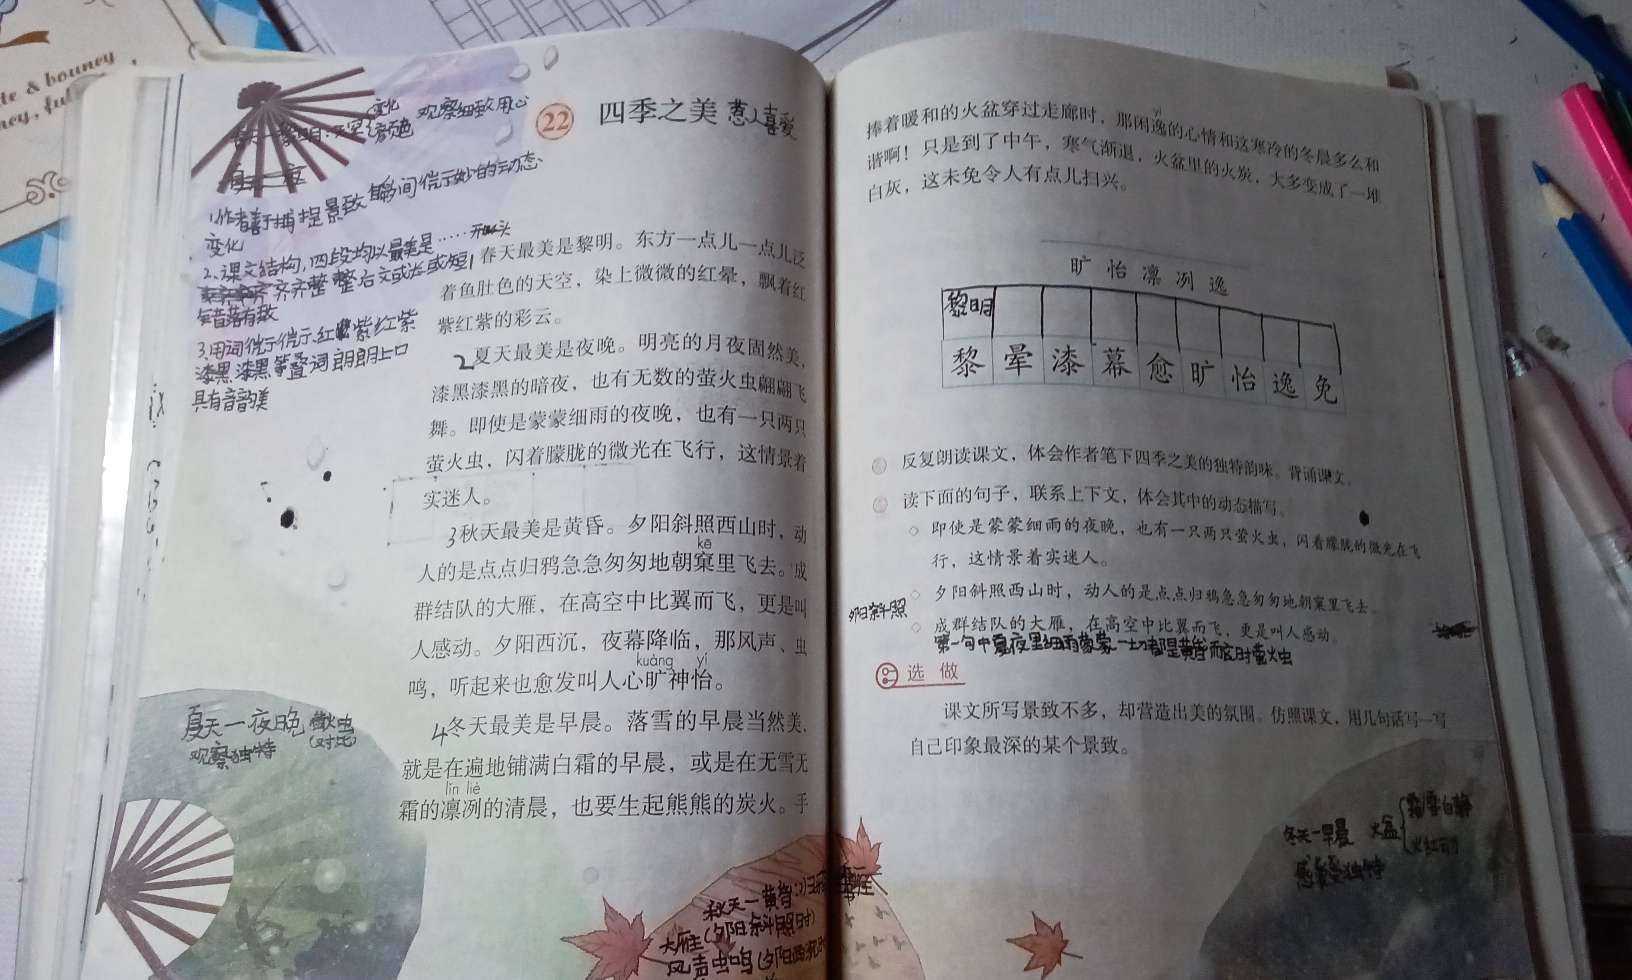 te & bouncy
22 四季之美 惹人喜爱
变化 观察细致用心
1.作者善于捕捉景致瞬间微妙的动态
变化
2.课文结构,四段均以最美是……开头
齐齐整整后文或长或短
错落有致
紫红紫
漆黑漆黑等叠词朗朗上口
具有音韵美
1春天最美是黎明。东方一点儿一点儿泛
着鱼肚色的天空，染上微微的红晕，飘着红
紫红紫的彩云。
2夏天最美是夜晚。明亮的月夜固然美，
漆黑漆黑的暗夜，也有无数的萤火虫翩翩飞
舞。即使是蒙蒙细雨的夜晚，也有一只两只
萤火虫，闪着朦胧的微光在飞行，这情景着
实迷人。
3秋天最美是黄昏。夕阳斜照西山时，动
kē
人的是点点归鸦急急匆匆地朝窠里飞去。成
群结队的大雁，在高空中比翼而飞，更是叫
人感动。夕阳西沉，夜幕降临，那风声、虫
kuàng yí
鸣，听起来也愈发叫人心旷神怡。
4冬天最美是早晨。落雪的早晨当然美，
就是在遍地铺满白霜的早晨，或是在无雪无
lǐn liè
霜的凛冽的清晨，也要生起熊熊的炭火。手
夏天一夜晚 萤火虫
(对比)
观察独特
秋天一黄昏
大雁(夕阳斜照时)
风声虫鸣
yì
捧着暖和的火盆穿过走廊时，那闲逸的心情和这寒冷的冬晨多么和
谐啊！只是到了中午，寒气渐退，火盆里的火炭，大多变成了一堆
白灰，这未免令人有点儿扫兴。
旷 怡 凛 冽 逸
黎明
黎 晕 漆 幕 愈 旷 怡 逸 免
反复朗读课文，体会作者笔下四季之美的独特韵味。背诵课文。
读下面的句子，联系上下文，体会其中的动态描写。
◇ 即使是蒙蒙细雨的夜晚，也有一只两只萤火虫，闪着朦胧的微光在飞
行，这情景着实迷人。
◇ 夕阳斜照西山时，动人的是点点归鸦急急匆匆地朝窠里飞去。
夕阳斜照
◇ 成群结队的大雁，在高空中比翼而飞，更是叫人感动。
第一句中夏夜里细雨蒙蒙一切都是
选做
课文所写景致不多，却营造出美的氛围。仿照课文，用几句话写一写
自己印象最深的某个景致。
冬天一早晨 火盆
感受独特